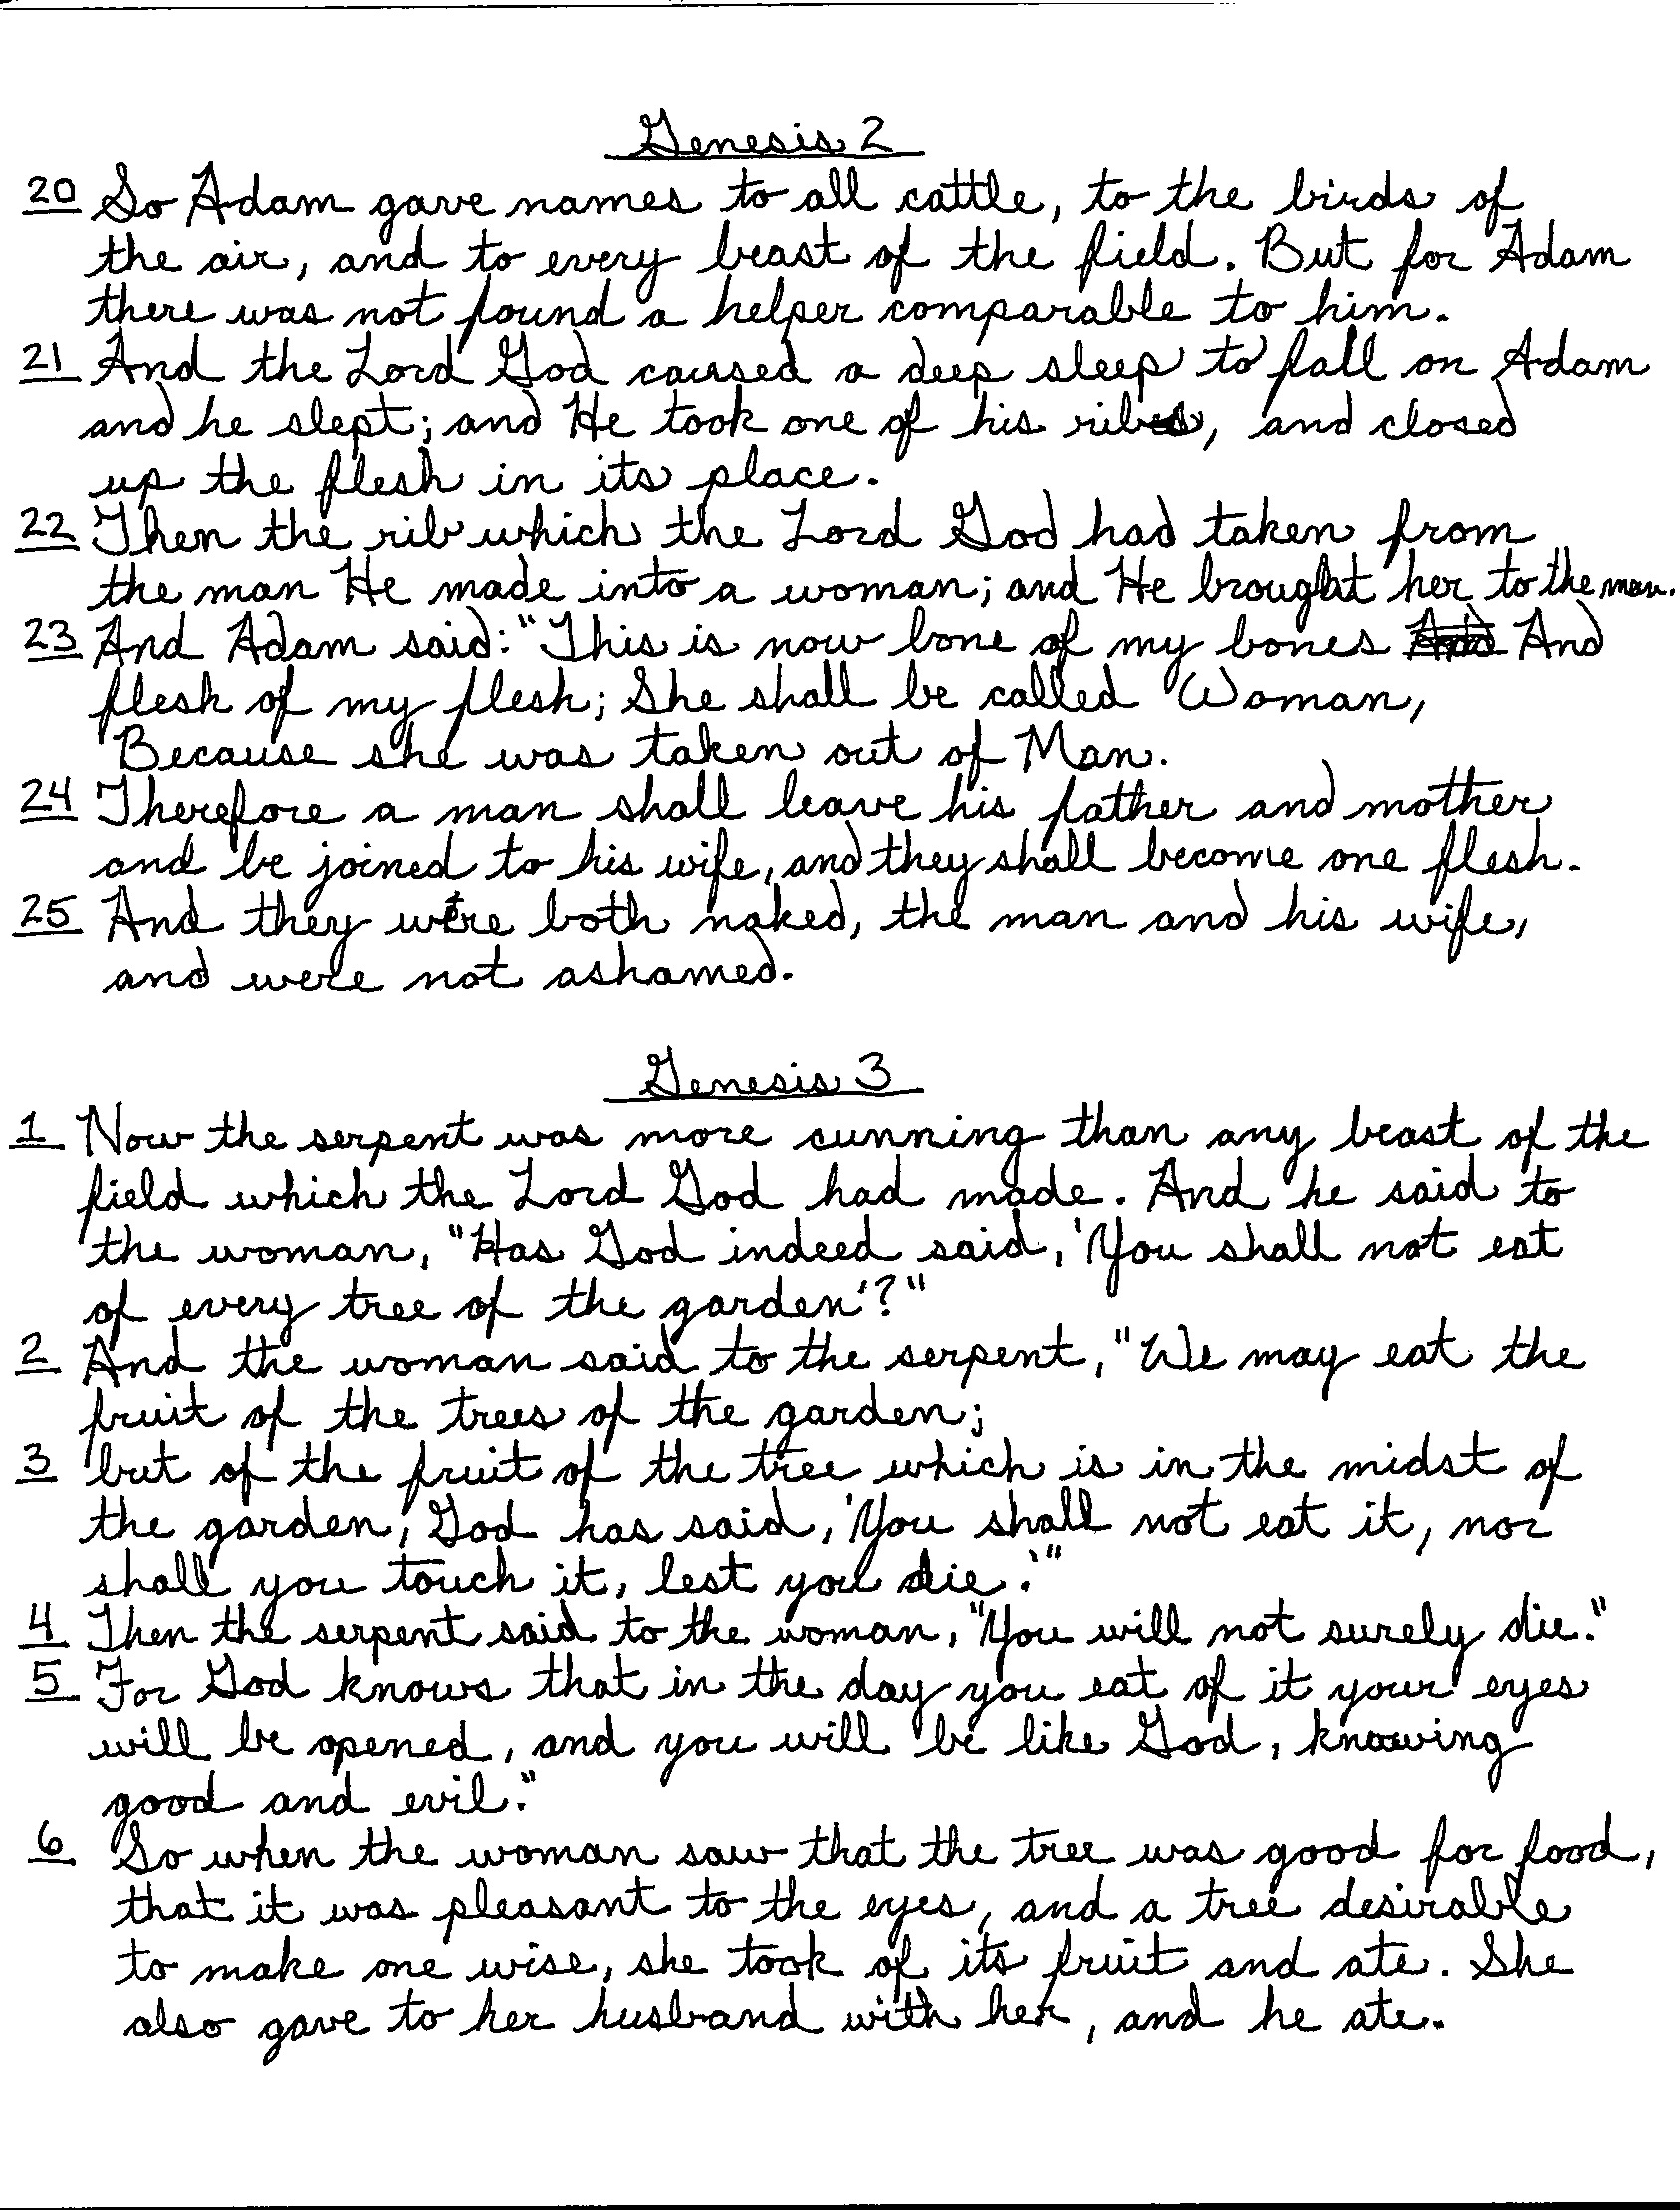 Genesis 2
20 So Adam gave names to all cattle, to the birds of
the air, and to every beast of the field. But for Adam
there was not found a helper comparable to him.
21 And the Lord God caused a deep sleep to fall on Adam
and he slept; and He took one of his ribs, and closed
up the flesh in its place.
22 Then the rib which the Lord God had taken from
the man He made into a woman; and He brought her to the man.
23 And Adam said: "This is now bone of my bones And And
flesh of my flesh; She shall be called Woman,
Because she was taken out of Man.
24 Therefore a man shall leave his father and mother
and be joined to his wife, and they shall become one flesh.
25 And they were both naked, the man and his wife,
and were not ashamed.
Genesis 3
1 Now the serpent was more cunning than any beast of the
field which the Lord God had made. And he said to
the woman, "Has God indeed said, 'You shall not eat
of every tree of the garden'?"
2 And the woman said to the serpent, "We may eat the
fruit of the trees of the garden;
3 but of the fruit of the tree which is in the midst of
the garden, God has said, 'You shall not eat it, nor
shall you touch it, lest you die.'"
4 Then the serpent said to the woman, "You will not surely die."
5 For God knows that in the day you eat of it your eyes
will be opened, and you will be like God, knowing
good and evil."
6 So when the woman saw that the tree was good for food,
that it was pleasant to the eyes, and a tree desirable
to make one wise, she took of its fruit and ate. She
also gave to her husband with her, and he ate.